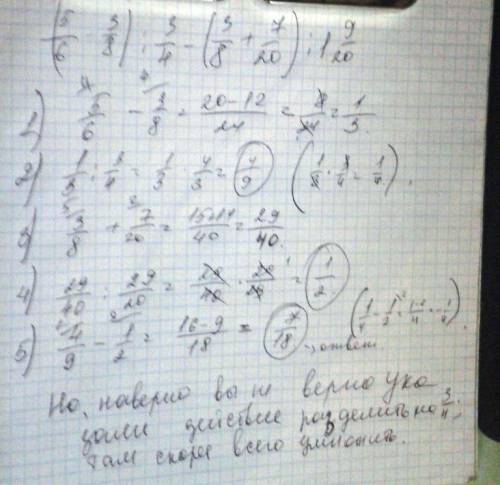 (5/6 - 3/8) : 3/4 - (3/8 + 7/20) : 1 9/20
1) 5/6 - 3/8 = (20-12)/24 = 8/24 = 1/3.
2) 1/3 : 3/4 = 1/3 · 4/3 = 4/9 (1/3 · 3/4 = 1/4).
3) 3/8 + 7/20 = (15+14)/40 = 29/40.
4) 29/40 : 29/20 = 29/40 · 20/29 = 1/2
5) 4/9 - 1/2 = (16-9)/18 = 7/18 - ответ (1/4 - 1/2 = (1-2)/4 = -1/4).
Но, наверно вы не верно ука
зали действие разделить на 3/4,
там скорее всего умножить.